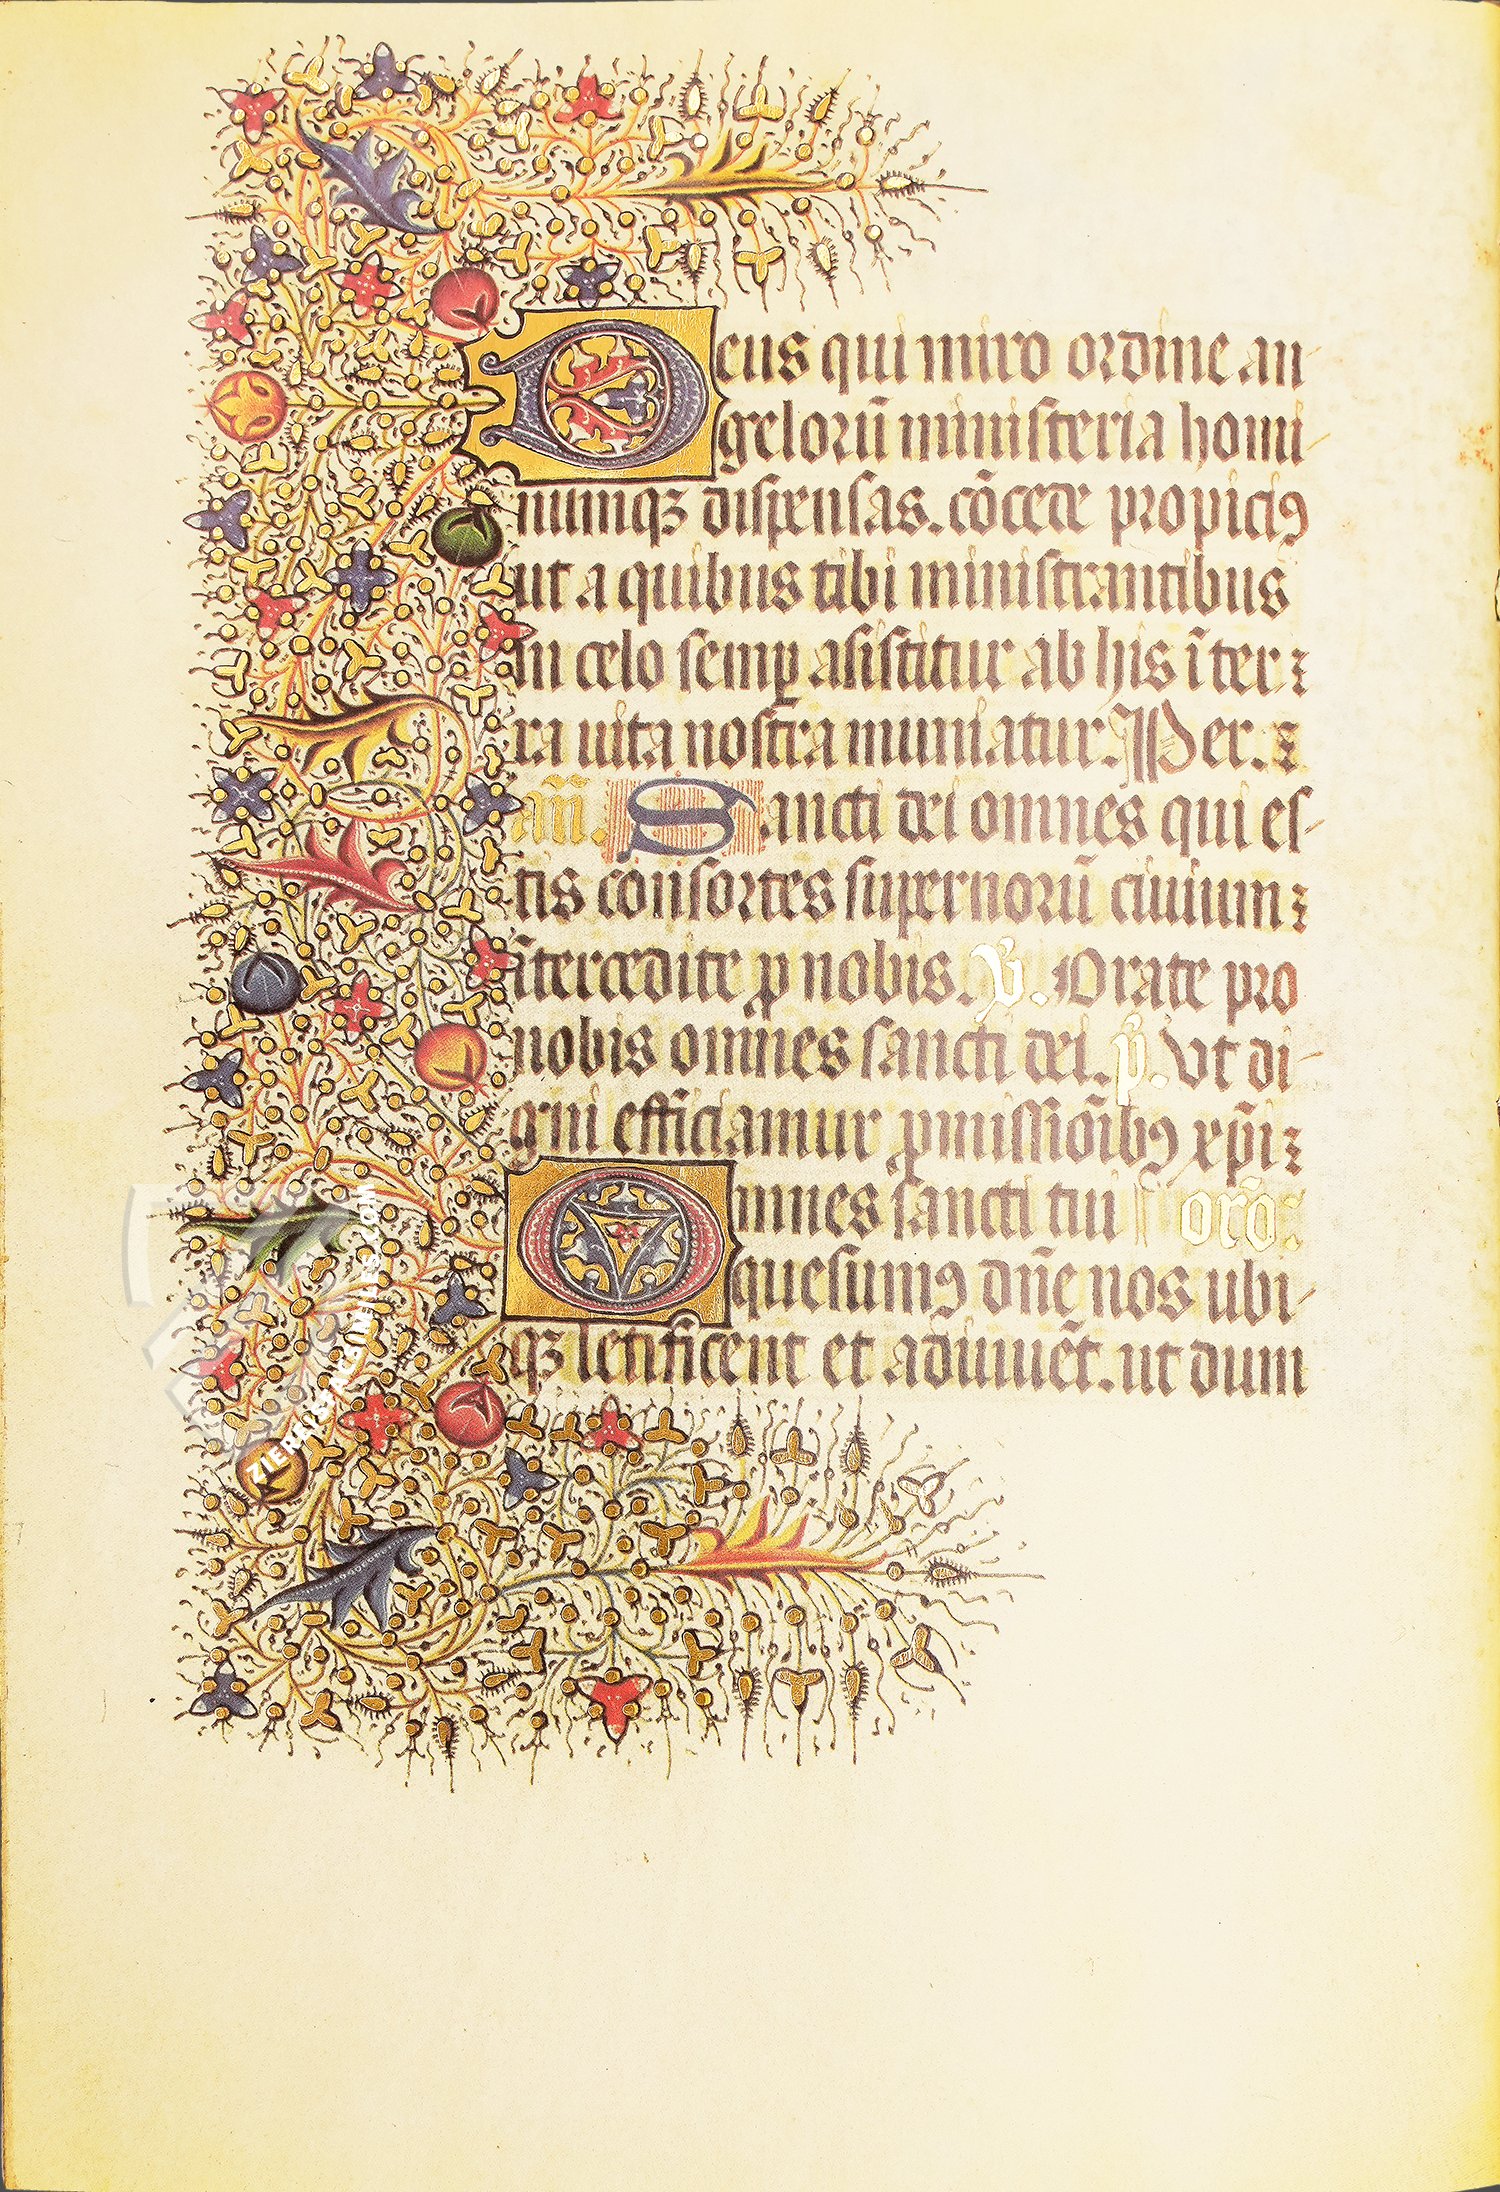 Deus qui miro ordine an
gelorū ministeria homi
numqꝫ dispensas. cōcede propiciꝰ
ut a quibus tibi ministrantibus
in celo semꝑ asistitur ab his ī ter
ra uita nostra muniatur. Per.
añ. Sancti dei omnes qui es
tis consortes supernorū ciuium
īntercedite ꝓ nobis. ꝟ. Orate pro
nobis omnes sancti dei. ꝶ. Vt di
gni efficiamur ꝓmissiōībꝰ xp̄i
Omnes sancti tui orō:
quesumꝰ dn̄e nos ubi
qꝫ letificent et adiuuēt. ut dum
ZIEREIS-FACSIMILES.COM